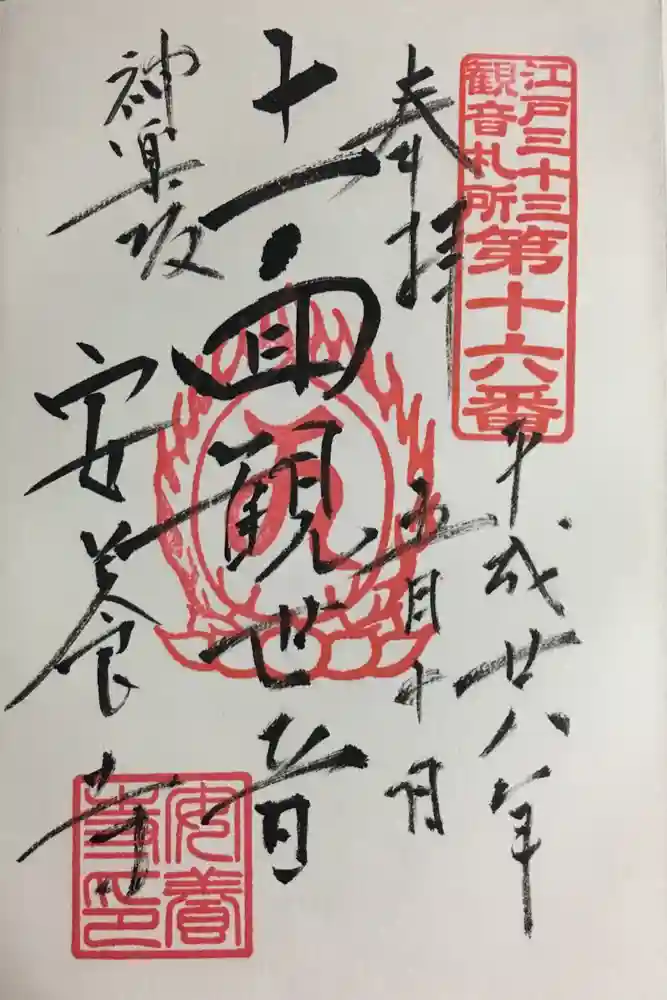 江戸三十三
観音札所
第十六番
奉拝
平成廿八年
五月十日
十一面観世音
神楽坂
安養寺
安養
寺印